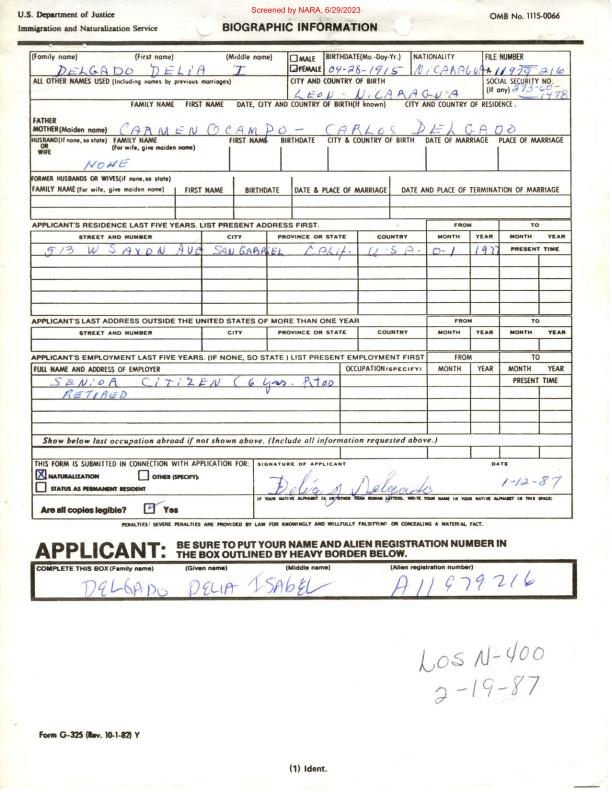 Screened by NARA, 6/29/2023
U.S. Department of Justice
Immigration and Naturalization Service
BIOGRAPHIC INFORMATION
OMB No. 1115-0066
(Family name) (First name) (Middle name) MALE FEMALE BIRTHDATE(Mo.-Day-Yr.) NATIONALITY FILE NUMBER
DELGADO DELIA I 04-28-1915 NICARAGUA A 11 979 216
ALL OTHER NAMES USED (Including names by previous marriages) CITY AND COUNTRY OF BIRTH SOCIAL SECURITY NO. (If any)
LEON - NICARAGUA
FAMILY NAME FIRST NAME DATE, CITY AND COUNTRY OF BIRTH(If known) CITY AND COUNTRY OF RESIDENCE.
FATHER
MOTHER(Maiden name) CARMEN OCAMPO - CARLOS DELGADO
HUSBAND(If none, so state) OR WIFE FAMILY NAME (For wife, give maiden name) FIRST NAME BIRTHDATE CITY & COUNTRY OF BIRTH DATE OF MARRIAGE PLACE OF MARRIAGE
NONE
FORMER HUSBANDS OR WIVES(if none, so state)
FAMILY NAME (For wife, give maiden name) FIRST NAME BIRTHDATE DATE & PLACE OF MARRIAGE DATE AND PLACE OF TERMINATION OF MARRIAGE
APPLICANT'S RESIDENCE LAST FIVE YEARS. LIST PRESENT ADDRESS FIRST. FROM TO
STREET AND NUMBER CITY PROVINCE OR STATE COUNTRY MONTH YEAR MONTH YEAR
513 W SAXON AVE SAN GABRIEL Calif. U.S.A. 0-1 PRESENT TIME
APPLICANT'S LAST ADDRESS OUTSIDE THE UNITED STATES OF MORE THAN ONE YEAR FROM TO
STREET AND NUMBER CITY PROVINCE OR STATE COUNTRY MONTH YEAR MONTH YEAR
APPLICANT'S EMPLOYMENT LAST FIVE YEARS. (IF NONE, SO STATE) LIST PRESENT EMPLOYMENT FIRST FROM TO
FULL NAME AND ADDRESS OF EMPLOYER OCCUPATION(SPECIFY) MONTH YEAR MONTH YEAR
SENIOR CITIZEN (6 yrs. PRESENT TIME
RETIRED
Show below last occupation abroad if not shown above. (Include all information requested above.)
THIS FORM IS SUBMITTED IN CONNECTION WITH APPLICATION FOR: SIGNATURE OF APPLICANT DATE
X NATURALIZATION OTHER (SPECIFY):
STATUS AS PERMANENT RESIDENT
Delia I Delgado 1-12-87
IF YOUR NATIVE ALPHABET IS IN OTHER THAN ROMAN LETTERS, WRITE YOUR NAME IN YOUR NATIVE ALPHABET IN THIS SPACE:
Are all copies legible? Yes
PENALTIES: SEVERE PENALTIES ARE PROVIDED BY LAW FOR KNOWINGLY AND WILLFULLY FALSIFYING OR CONCEALING A MATERIAL FACT.
APPLICANT: BE SURE TO PUT YOUR NAME AND ALIEN REGISTRATION NUMBER IN
THE BOX OUTLINED BY HEAVY BORDER BELOW.
COMPLETE THIS BOX (Family name) (Given name) (Middle name) (Alien registration number)
DELGADO DELIA ISABEL A11979216
LOS N-400
2-19-87
Form G-325 (Rev. 10-1-82) Y
(1) Ident.